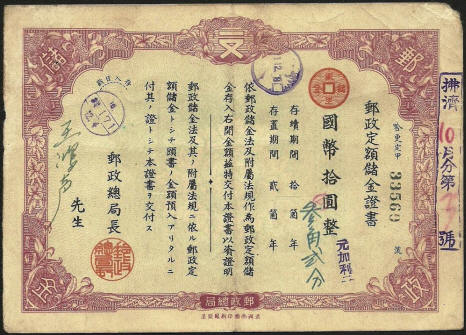 郵政儲金
郵政定額儲金證書
33569
號
國幣拾圓整
存續期間 拾 箇年
存置期間 貳 箇年
叁角貳分
元加利
依郵政儲金法及其附屬法規作為郵政定額儲
金存入右開金額茲特交付本證書以資證明
郵政儲金法及其ノ附屬法規ニ依ル郵政定
額儲金トシテ頭書ノ金額預入アリタルニ
付其ノ證トシテ本證書ヲ交付ス
郵政總局長
先生
郵政總局
拂濟
10月分第
號